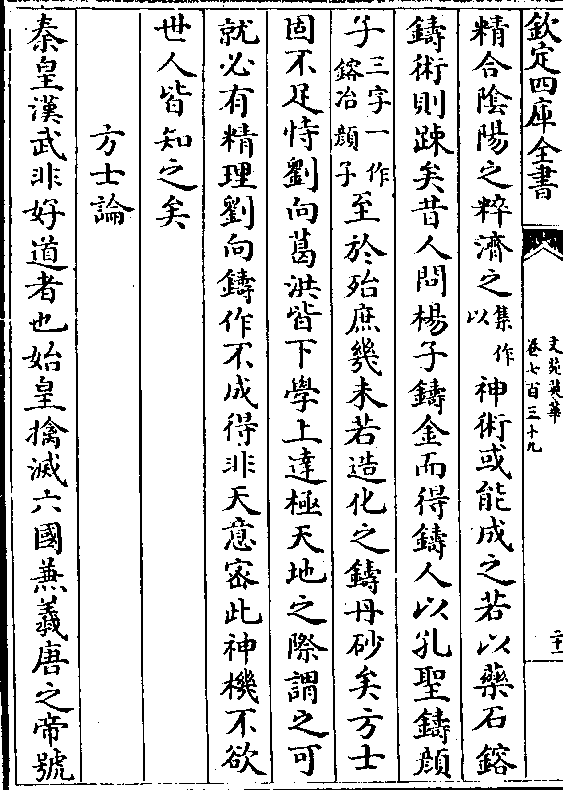 欽定四庫全書
文苑英華
卷七百三十九
二十
精合陰陽之粹濟之集作以神術或能成之若以藥石鎔
鑄術則踈矣昔人問楊子鑄金而得鑄人以孔聖鑄顔
子三字一作鎔冶顔子至於殆庶幾未若造化之鑄丹砂矣方士
固不足恃劉向葛洪皆下學上達極天地之際謂之可
就必有精理劉向鑄作不成得非天意密此神機不欲
世人皆知之矣
方士論
秦皇漢武非好道者也始皇擒滅六國兼羲唐之帝號